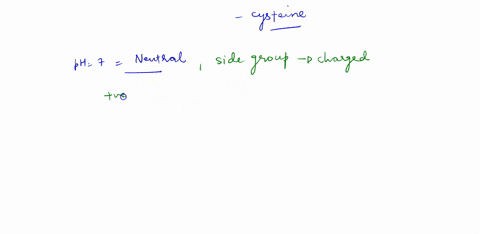 - cysteine
pH = 7 = Neutral, side group → charged
+ve